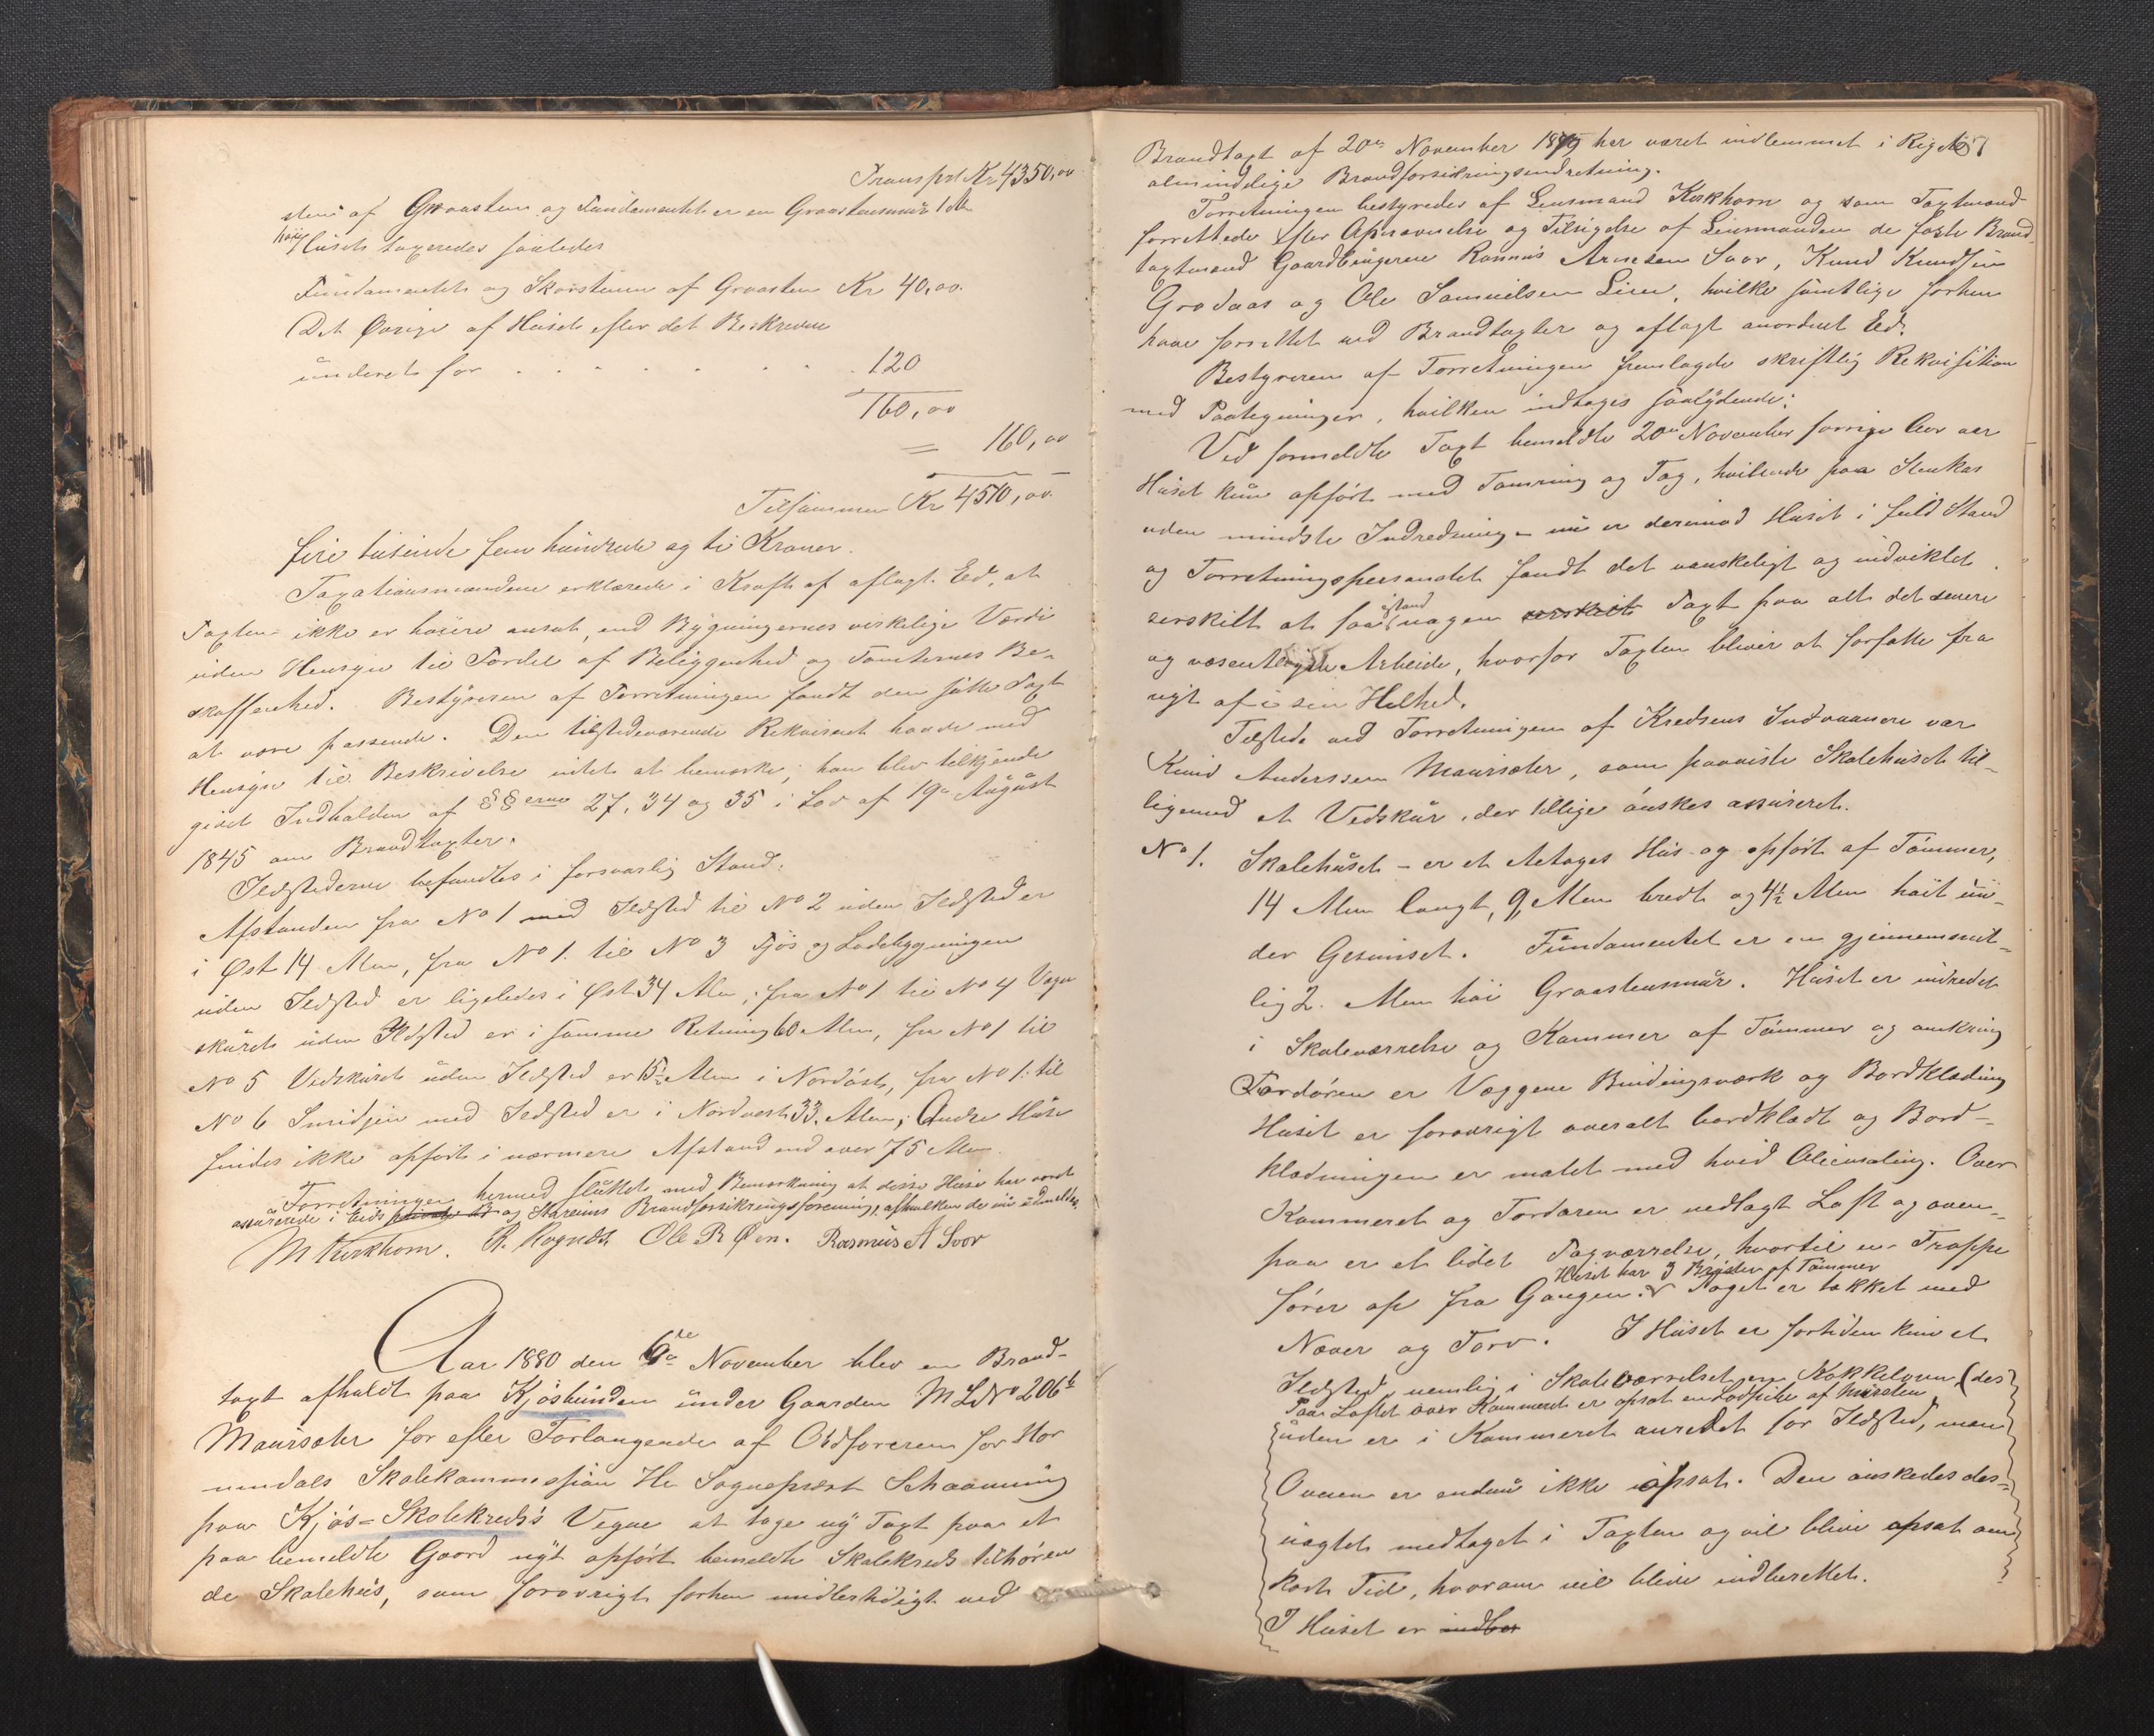 Transpr Kr 4350,00
sten af Graasten og Fundamentet er en Graastensmür 1 Al.
høi/ Huset taxeredes saaledes
Fundamentet og Skorstenen af Graasten Kr 40,00.
Det Øvrige af Huset efter det Beskrevne
vurderet for . . . . . . . 120
160,00
= 160,00
Tilsammen Kr 4510,00
fire tusinde fem hundrede og ti Kroner.
Taxationsmændene erklærede i Kraft af aflagt Eed, at
Taxten ikke er høiere ansat, end Bygningernes virkelige Værdi
uden Hensyn til Fordel af Beliggenhed og Tomternes Be-
skaffenhed. Bestyreren af Forretningen fandt den satte Taxt
at være passende. Den tilstedeværende Rekvirent havde med
Hensyn til Beskrivelse intet at bemærke; han blev tilkjende
givet Indholden af §§erne 27, 34 og 35 i Lov af 19de August
1845 om Brandtaxter.
Ildstederne befandtes i forsvarlig Stand.
Afstanden fra No 1 med Ildsted til No 2 uden Ildsted er
i Øst 14 Alen, fra No 1. til No 3 Fjøs og Ladebygningen
uden Ildsted er ligeledes i Øst 34 Alen, fra No 1 til No 4 Vogn
skuret uden Ildsted er i samme Retning 60 Alen, fra No 1 til
No 5 Vedskuret uden Ildsted er 15 Alen i Nordøst, fra No 1. til
No 6 Smidjen med Ildsted er i Nordvest 33. Alen; Andre Huse
findes ikke opført i nærmere Afstand end over 75 Alen.
Forretningen hermed sluttet med Bemærkning at disse Huse har været
assurerede i Eids og Starems Brandforsikringsforening, afhvilken de nu udmeldes.
M Kirkhorn. R. Rognes Ole R Øen. Rasmus A Soor
Aar 1880 den 6te November blev en Brand-
taxt afholdt paa Kjøsbunden under Gaarden M L No 206b
Maursæter for efter Forlangende af Ordføreren for Hor
nindals Skolekommission Hr Sognepræst Schaanning
paa Kjøs-Skolekreds's Vegne at tage ny Taxt paa et
paa bemeldte Gaard nyt opført bemeldte Skolekreds tilhøren
de Skolehus, som forøvrigt forhen midlertidigt ved
Brandtaxt af 20de November 1879 har været indlemmet i Rigets
almindelige Brandforsikringsindretning.
Forretningen bestyredes af Lensmand Kirkhorn og som Taxtmænd
forrettede efter Opnævnelse og Tilsigelse af Lensmanden de faste Brand-
taxtmænd Gaardbrugerne Rasmus Arnesen Soor, Knud Knudsen
Grodaas og Ole Samuelsen Lien, hvilke samtlige forhen
have forrettet ved Brandtaxter og aflagt anordnet Eed.
Bestyreren af Forretningen fremlagde skriftlig Rekvisition
med Paategninger, hvilken indtages saalydende:
Ved formeldte Taxt bemeldte 20de November forrige Aar var
Huset kun opført med Tømring og Tag, hvilende paa Stenkar
uden mindste Indredning – nu er derimod Huset i fuld Stand
og Forretningspersonalet fandt det vanskeligt og indviklet
serskilt at faa istand nogen serskilt Taxt paa alt det senere
og væsentligste Arbeide, hvorfor Taxten bliver at forfatte fra
nyt af i sin Helhed.
Tilstede ved Forretningen af Kredsens Indvaanere var
Knud Anderssen Maursæter, som paaviste Skolehuset til-
ligemed et Vedskur, der tillige ønskes assureret.
No 1. Skolehuset – er et Aetages Hus og opført af Tømmer,
14 Alen langt, 9 Alen bredt og 4½ Alen høit un-
der Gesimset. Fundamentet er en gjennemsnit-
lig 2. Alen høi Graastensmur. Huset er indredet
i Skoleværrelse og Kammer af Tømmer og omkring
Fordøren er Væggene Bindingsværk og Bordklædning
Huset er forøvrigt overalt bordklædt og Bord-
klædningen er malet med hvid Oliemaling. Over
Kammeret og Fordøren er nedlagt Loft og oven-
paa er et lidet Tagværrelse, hvortil en Trappe
Huset har 3 Brøster af Tømmer
fører op fra Gangen. Taget er tækket med
Næver og Torv. I Huset er fortiden kun et
Ildsted, nemlig i Skoleværrelset en Kakkelovn (des
Paa Loftet over Kammeret er opsat en Lodpibe af Mursten
uden er i Kammeret anredet for Ildsted, men
Ovnen er endnu ikke opsat. Den ønskedes des-
uagtet medtaget i Taxten og vil blive opsat om
kort Tid, hvorom vil blive indberettet.
I Huset er indbe